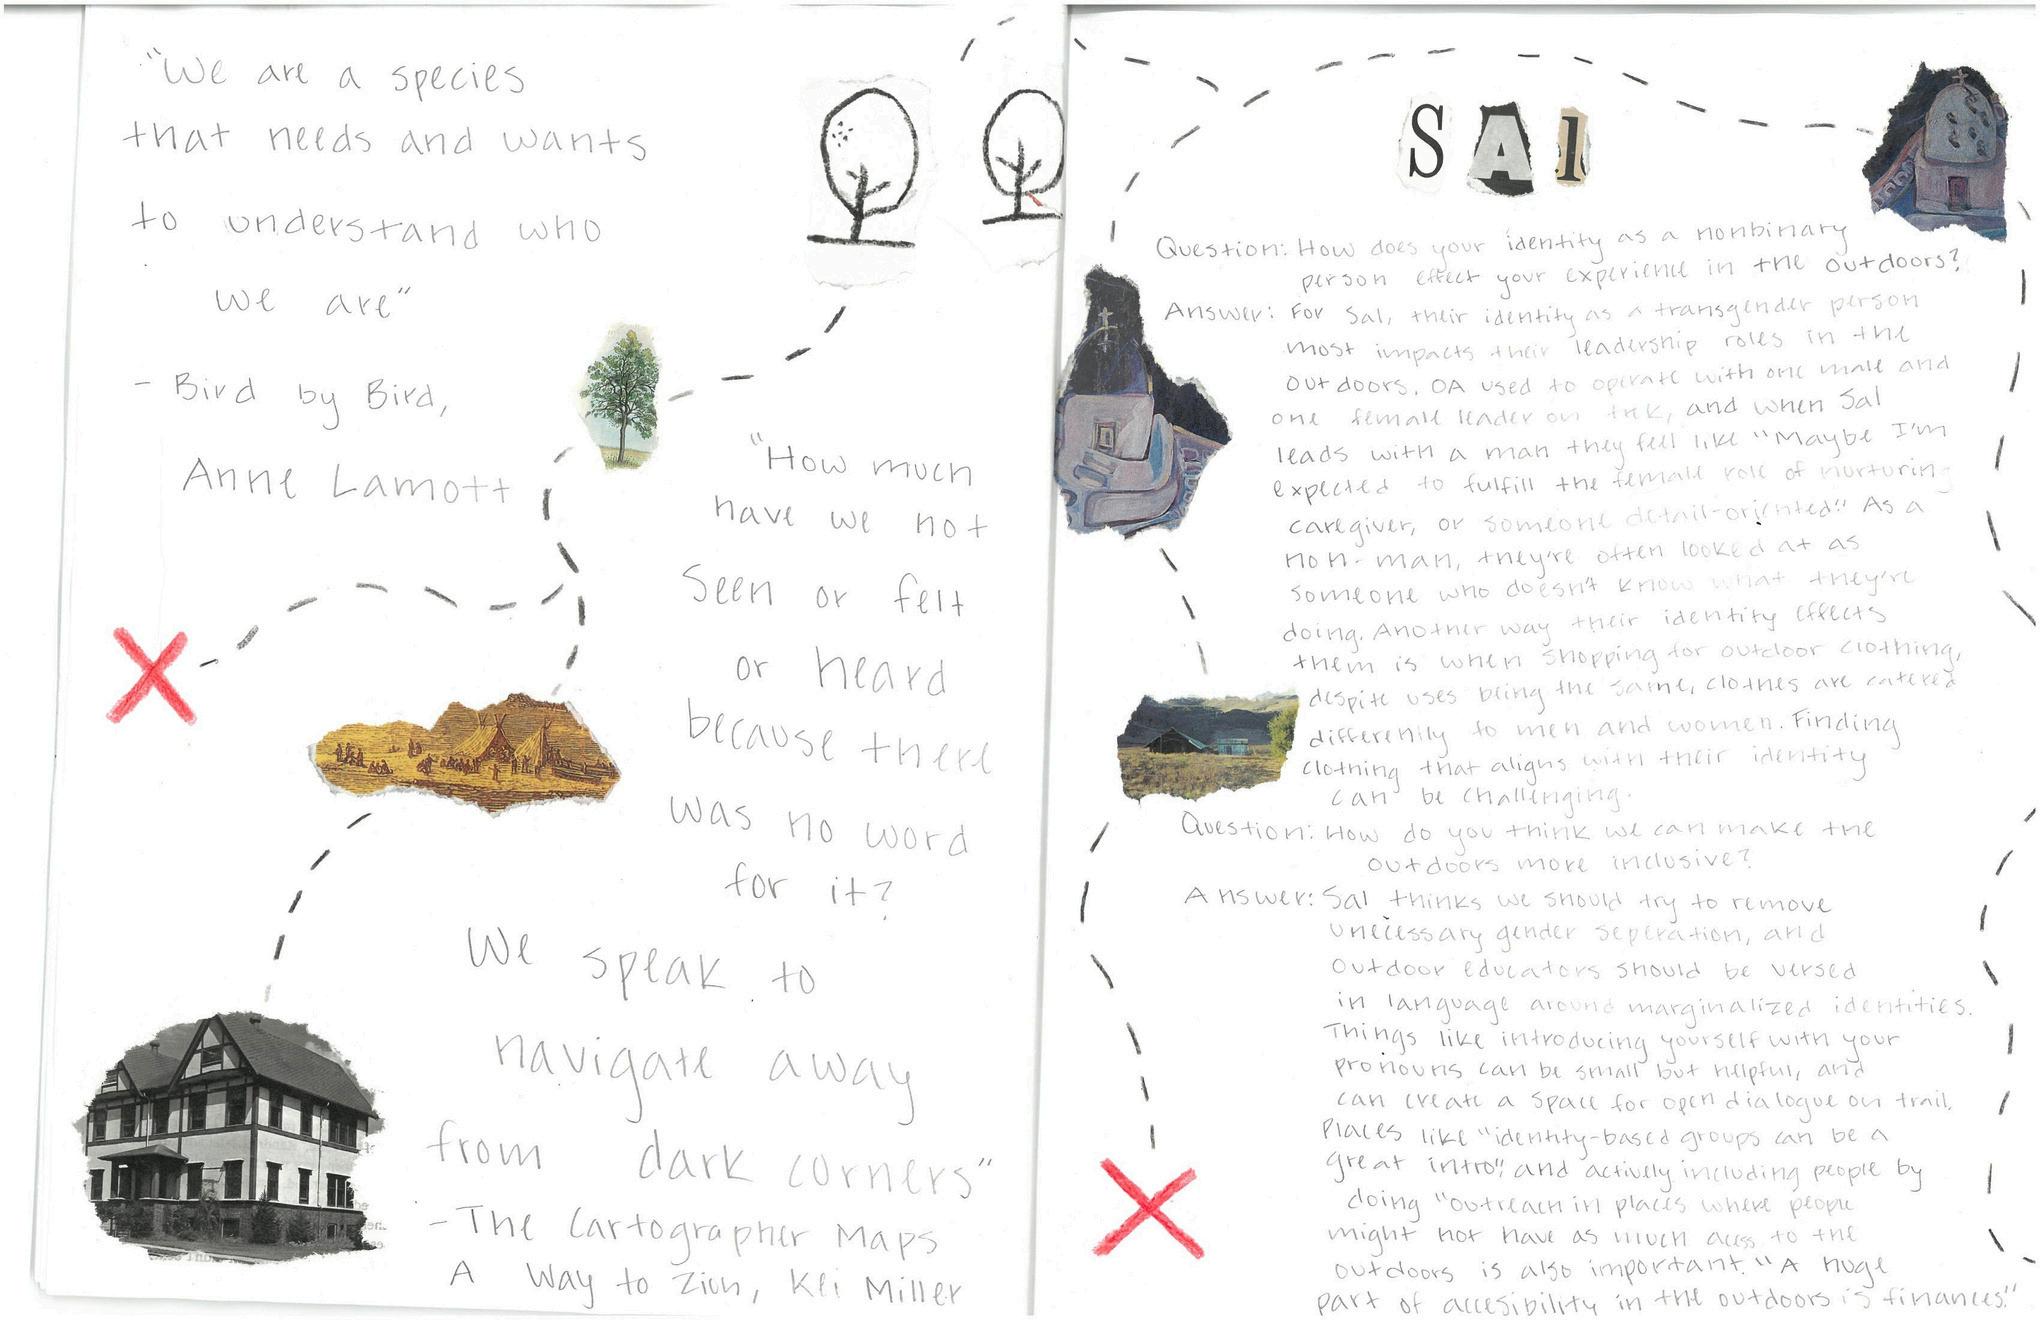 "We are a species
that needs and wants
to understand who
we are"
- Bird by Bird,
Anne Lamott
"How much
have we not
seen or felt
or heard
because there
was no word
for it?
We speak to
navigate away
from dark corners"
- The Cartographer Maps
A Way to Zion, Kei Miller
SAl
Question: How does your identity as a nonbinary
person effect your experience in the outdoors?
Answer: For Sal, their identity as a transgender person
most impacts their leadership roles in the
outdoors. OA used to operate with one male and
one female leader on trek, and when Sal
leads with a man they feel like "Maybe I'm
expected to fulfill the female role of nurturing
caregiver, or someone detail-oriented." As a
non-man, they're often looked at as
someone who doesn't know what they're
doing. Another way their identity effects
them is when shopping for outdoor clothing,
despite uses being the same, clothes are catered
differently to men and women. Finding
clothing that aligns with their identity
can be challenging.
Question: How do you think we can make the
outdoors more inclusive?
Answer: Sal thinks we should try to remove
unecessary gender seperation, and
outdoor educators should be versed
in language around marginalized identities.
Things like introducing yourself with your
pronouns can be small but helpful, and
can create a space for open dialogue on trail.
Places like "identity-based groups can be a
great intro", and actively including people by
doing "outreach in places where people
might not have as much acess to the
outdoors is also important." "A huge
part of accesibility in the outdoors is finances."